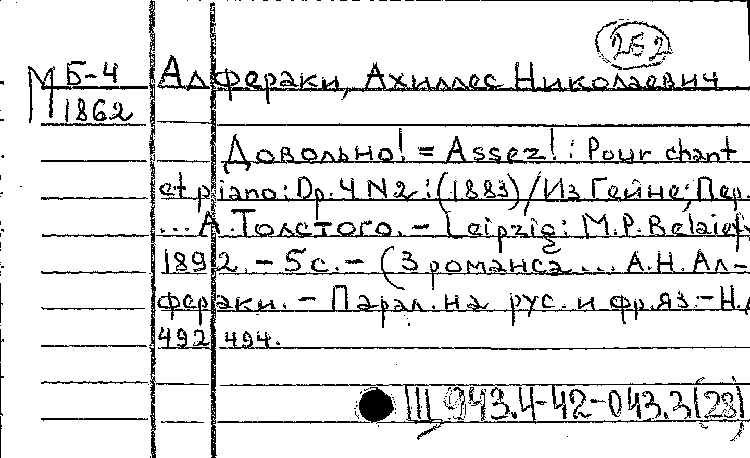 252
М Б-4
1862
Алфераки, Ахиллес Николаевич
Довольно! = Assez! : Pour chant
et piano: Op. 4 N2 : (1883) / Из Гейне; Пер.
... А. Толстого. - Leipzig: M.P. Belaieff,
1892. - 5 с. - (3 романса ... А.Н. Ал-
фераки. - Парал. на рус. и фр. яз. - Н.
492 494.
III 943.4-42-043.3(28)